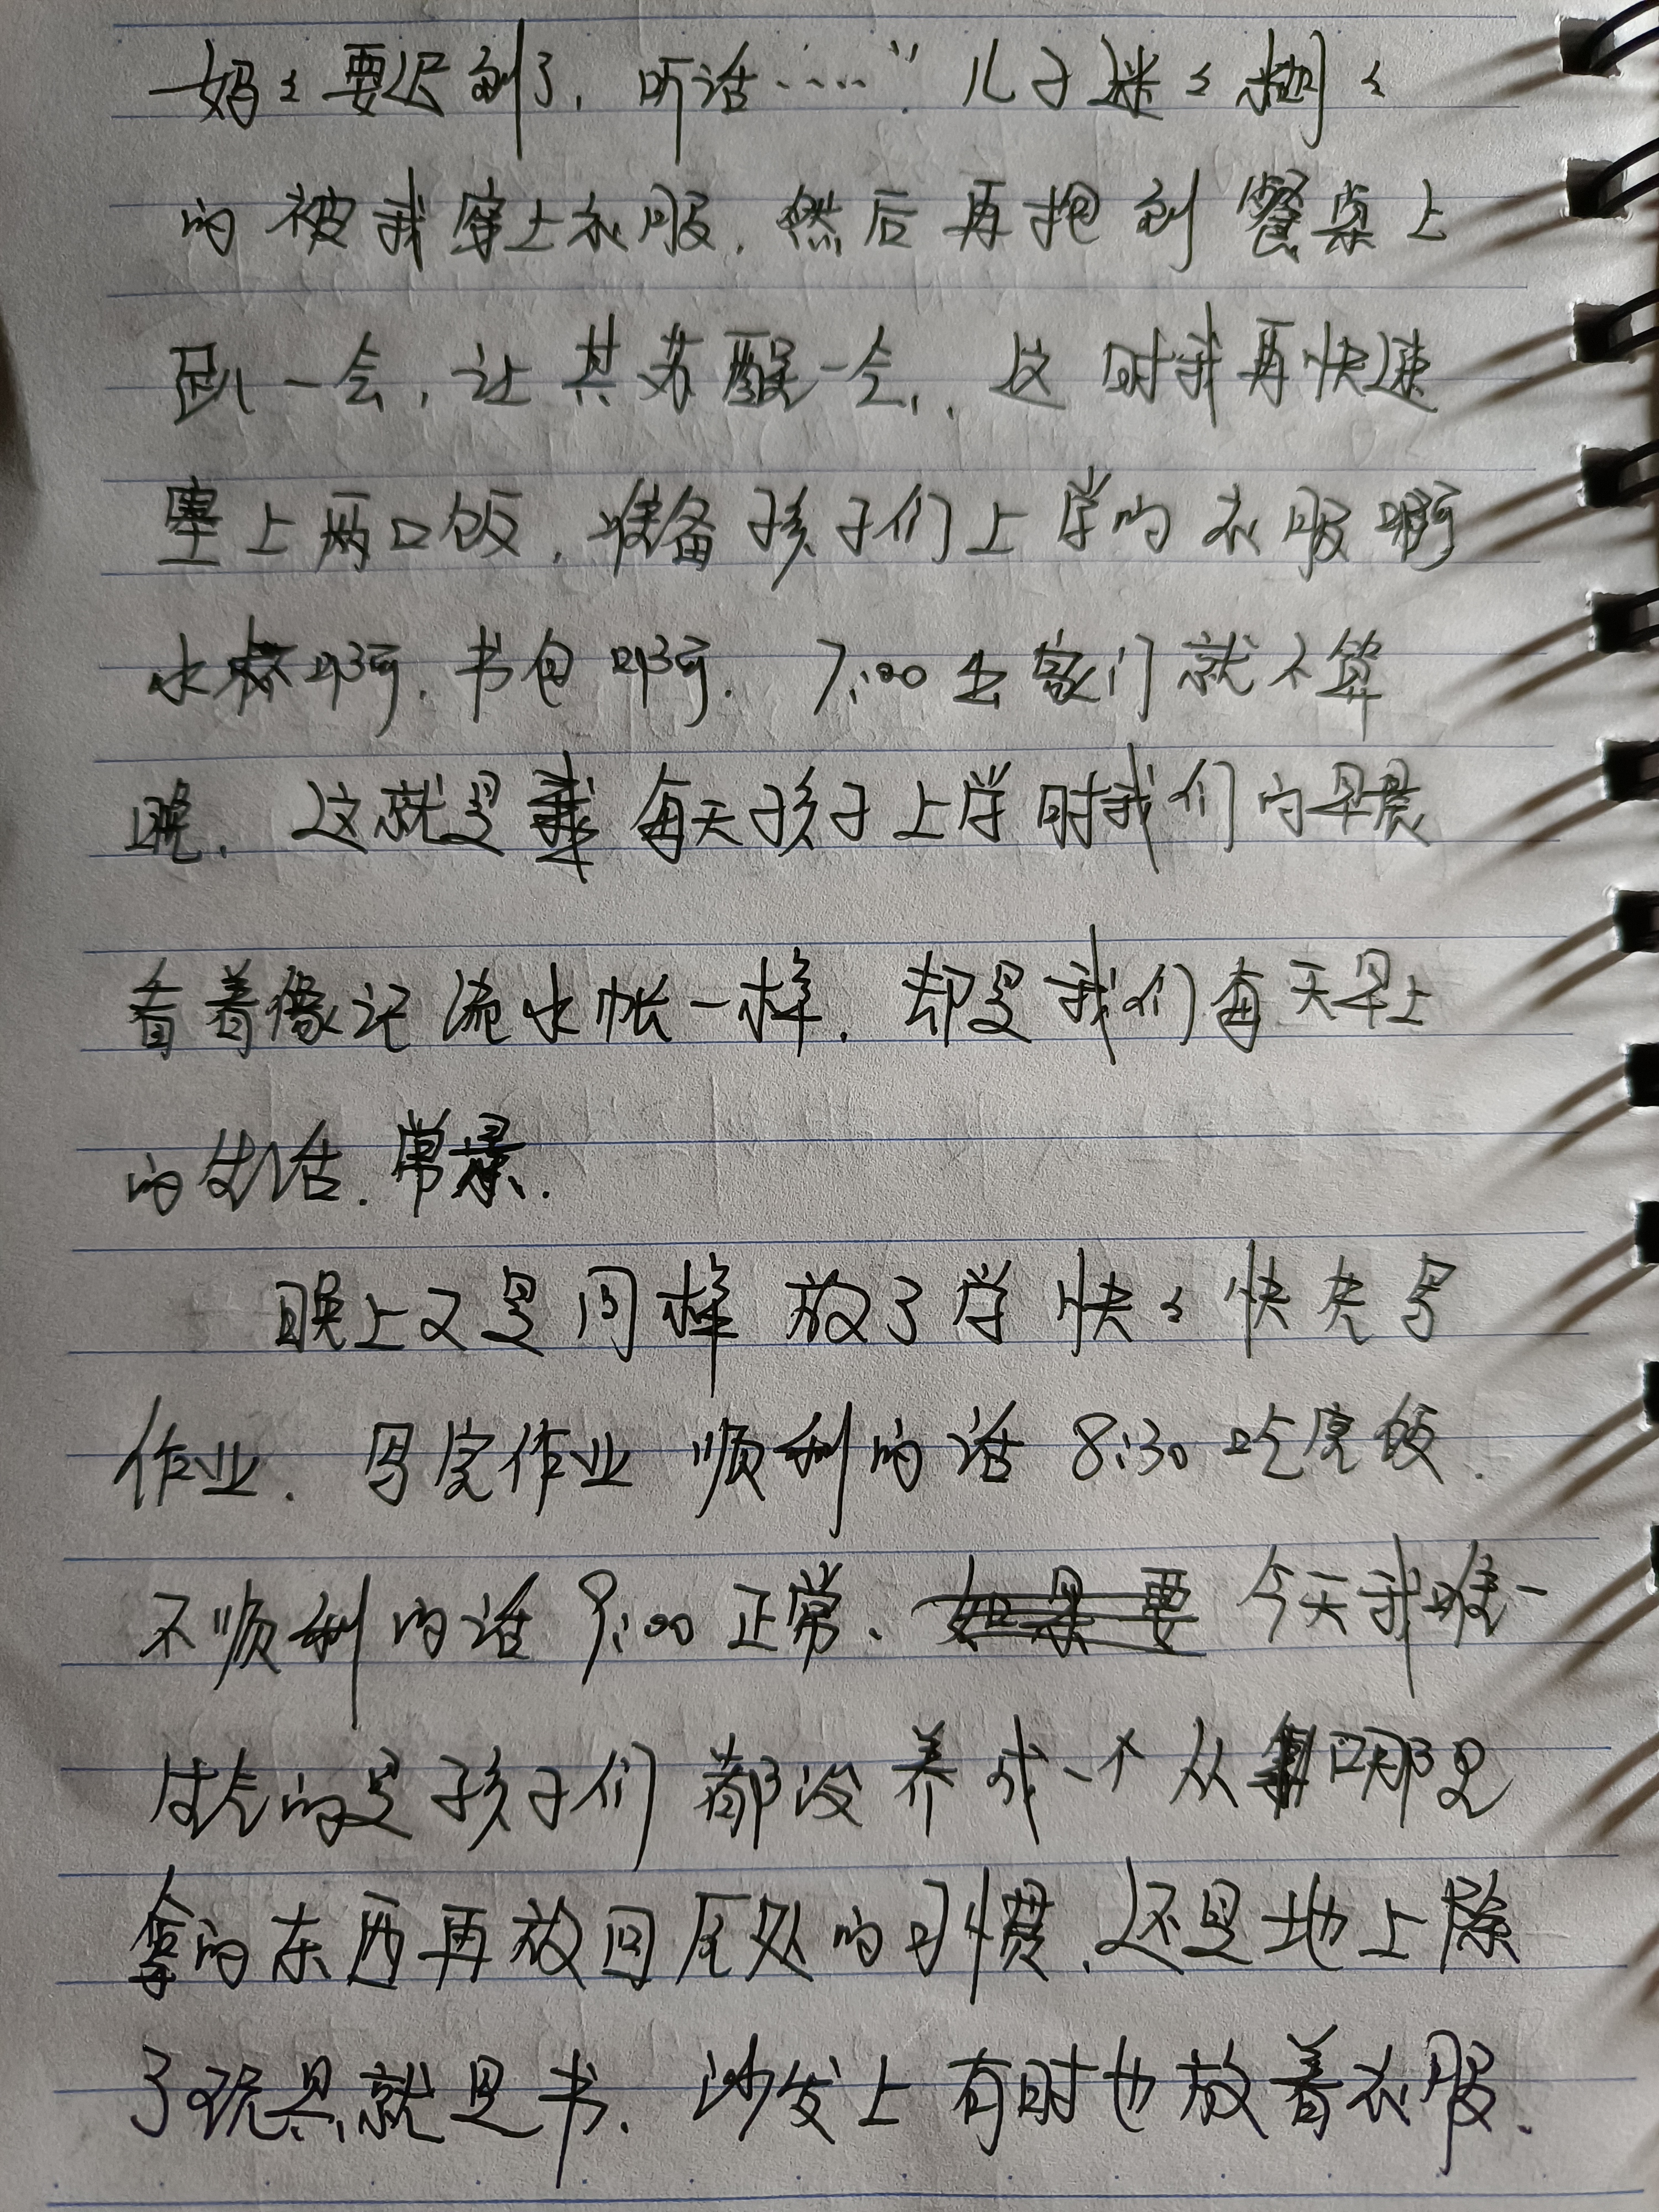 妈々要迟到了，听话……”儿子迷々糊々
的被我穿上衣服，然后再抱到餐桌上
趴一会，让其苏醒一会，这时我再快速
塞上两口饭，准备孩子们上学的衣服啊
水杯啊，书包啊，7:00出家门就不算
晚，这就是每天孩子上学时我们的早晨
看着像记流水帐一样，却是我们每天早上
的生活.常景.
晚上又是同样放了学快々快先写
作业，写完作业顺利的话8:30吃完饭，
不顺利的话9:00正常、今天我唯一
发愁的是孩子们都没养成一个从哪里
拿的东西再放回原处的习惯，还是地上除
了玩具就是书、沙发上有时也放着衣服、